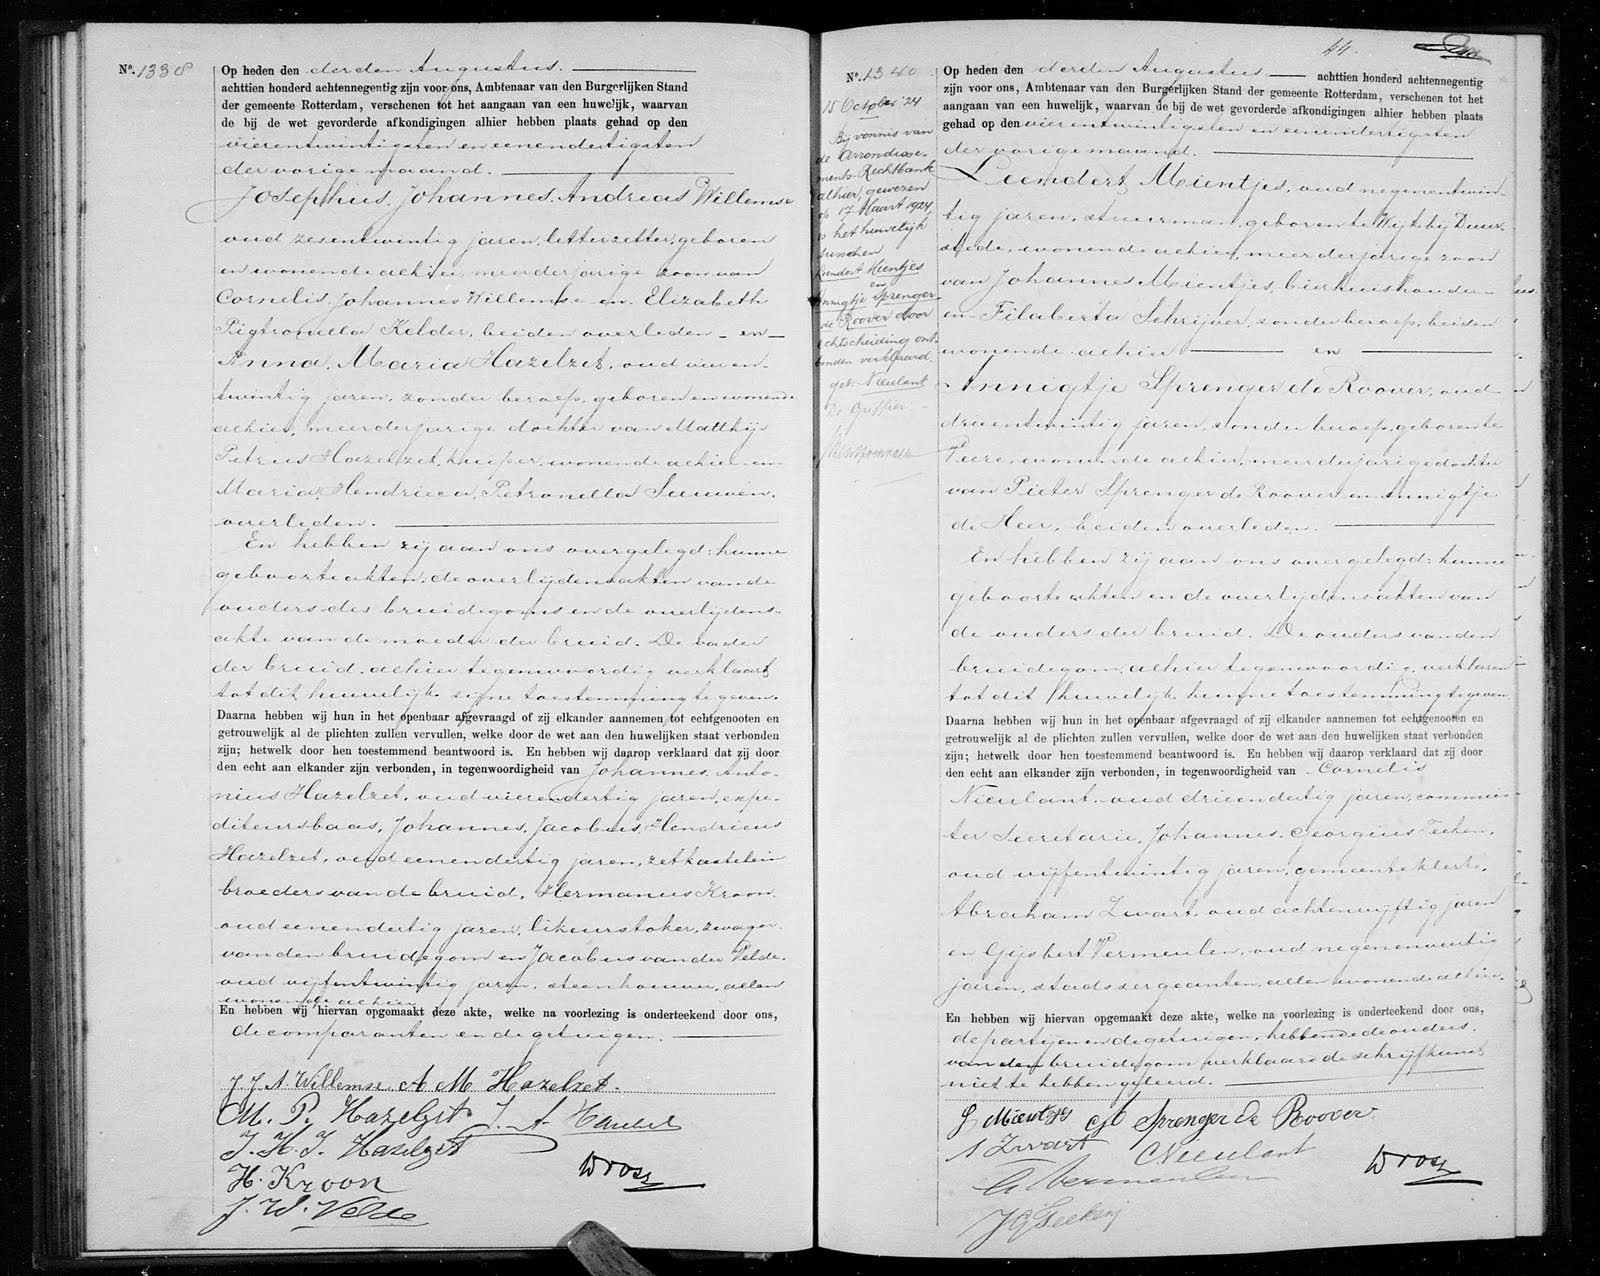 Nº. 1338
Op heden den derden Augustus.
achttien honderd achtennegentig zijn voor ons, Ambtenaar van den Burgerlijken Stand
der gemeente Rotterdam, verschenen tot het aangaan van een huwelijk, waarvan
de bij de wet gevorderde afkondigingen alhier hebben plaats gehad op den
vierentwintigsten en eenendertigsten
der vorige maand.
Josephus, Johannes, Andreas Willemse
oud zesentwintig jaren, letterzetter, geboren
en wonende alhier, meerderjarige zoon van
Cornelis, Johannes Willemse en Elizabeth
Pigtronella Kelder, beiden overleden - en -
Anna, Maria Hazelzet, oud vieren-
twintig jaren, zonder beroep, geboren en wonende
alhier, meerderjarige dochter van Matthijs
Petrus Hazelzet, kuiper, wonende alhier en
Maria, Hendrieca, Petronella Leeuwen,
overleden.
En hebben zij aan ons overgelegd: hunne
geboorteakten, de overlijdensakten van de
ouders des bruidegoms en de overlijdens-
akte van de moeder der bruid. De vader
der bruid, alhier tegenwoordig verklaart
tot dit huwelijk zijne toestemming te geven.
Daarna hebben wij hun in het openbaar afgevraagd of zij elkander aannemen tot echtgenooten en
getrouwelijk al de plichten zullen vervullen, welke door de wet aan den huwelijken staat verbonden
zijn; hetwelk door hen toestemmend beantwoord is. En hebben wij daarop verklaard dat zij door
den echt aan elkander zijn verbonden, in tegenwoordigheid van Johannes, Anto-
nius Hazelzet, oud vierendertig jaren, expe-
diteursbaas, Johannes, Jacobus, Hendricus
Hazelzet, oud eenendertig jaren, zetkastelein
broeders van de bruid, Hermanus Kroon
oud eenendertig jaren, likeurstoker, zwager
van den bruidegom en Jacobus van der Velde,
oud vijfentwintig jaren, steenhouwer, allen
wonende alhier
En hebben wij hiervan opgemaakt deze akte, welke na voorlezing is onderteekend door ons,
de comparanten en de getuigen.
J. J. A. Willemse A M Hazelzet.
M. P. Hazelzet J. A. Hazelzet
J. H. J. Hazelzet
H. Kroon
J. v. d. Velde
44.
Nº. 1340
15 October '24
Bij vonnis van
de Arrondisse-
ments-Rechtbank
alhier, gewezen
17 Maart 1924
is het huwelijk
tusschen
Leendert Mientjes
en
Annigtje Sprenger
de Roover door
echtscheiding ont-
bonden verklaard.
get. Nieulant
De Griffier
Op heden den derden Augustus achttien honderd achtennegentig
zijn voor ons, Ambtenaar van den Burgerlijken Stand der gemeente Rotterdam, verschenen tot het
aangaan van een huwelijk, waarvan de bij de wet gevorderde afkondigingen alhier hebben plaats
gehad op den vierentwintigsten en eenendertigsten
der vorige maand.
Leendert Mientjes, oud negenentwin-
tig jaren, stuurman, geboren te Wijk bij Duur-
stede, wonende alhier, meerderjarige zoon
van Johannes Mientjes, bierhuishouder
en Filaberta Schrijver, zonder beroep, beiden
wonende alhier en
Annigtje Sprenger de Roover, oud
drieentwintig jaren, zonder beroep, geboren te
Veere, wonende alhier, meerderjarige dochter
van Pieter Sprenger de Roover en Annigtje
de Heer, beiden overleden.
En hebben zij aan ons overgelegd: hunne
geboorteakten en de overlijdensakten van
de ouders der bruid. De ouders van den
bruidegom, alhier tegenwoordig, verklaren
tot dit huwelijk hunne toestemming te geven.
Daarna hebben wij hun in het openbaar afgevraagd of zij elkander aannemen tot echtgenooten en
getrouwelijk al de plichten zullen vervullen, welke door de wet aan den huwelijken staat verbonden
zijn; hetwelk door hen toestemmend beantwoord is. En hebben wij daarop verklaard dat zij door
den echt aan elkander zijn verbonden, in tegenwoordigheid van Cornelis
Nieulant, oud drieendertig jaren, commies
ter Secretarie, Johannes, Georgius Teeken,
oud vijfentwintig jaren, gemeenteklerk,
Abraham Zwart, oud achtenvijftig jaren
en Gijsbert Vermeulen, oud negenenveertig
jaren, stadssergeanten, allen wonende alhier.
En hebben wij hiervan opgemaakt deze akte, welke na voorlezing is onderteekend door ons,
de partijen en de getuigen, hebbende de ouders
van den bruidegom verklaard de schrijfkunst
niet te hebben geleerd.
L Mientjes A Sprenger de Roover
A Zwart C Nieulant
G Vermeulen